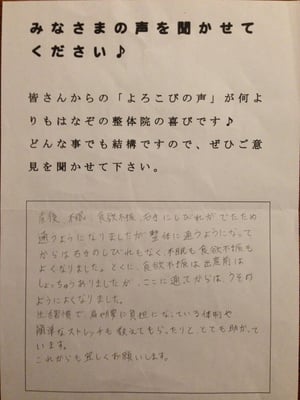 みなさまの声を聞かせて
ください♪
皆さんからの「よろこびの声」が何よ
りもはなぞの整体院の喜びです♪
どんな事でも結構ですので、ぜひご意
見を聞かせて下さい。
産後、不眠、食欲不振、右手にしびれがでたため
通うようになりましたが、整体に通うようになって
からは右手のしびれもなく、不眠も食欲不振も
よくなりました。とくに、食欲不振は出産前は
しょっちゅうありましたが、ここに通ってからは、うその
ようによくなりました。
生活習慣で、肩や腰に負担になっている体制や
簡単なストレッチも教えてもらったりと、とても助かって
います。
これからも宜しくお願いします。